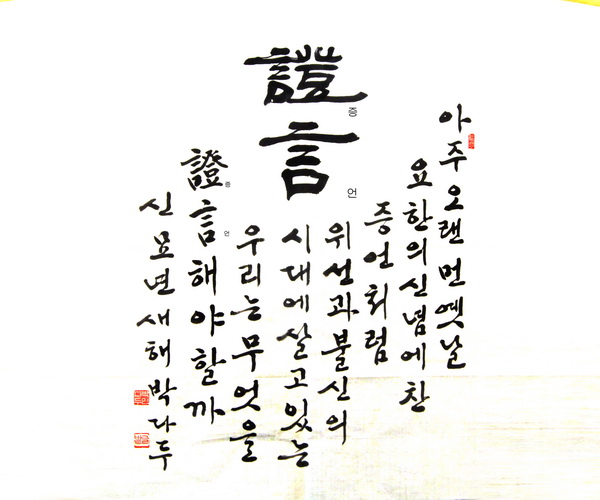 證증言언
아주오랜먼옛날
요한의신념에찬
증언처럼
위선과불신의
시대에살고있는
우리는무엇을
證증言언해야할까
신묘년새해박다두